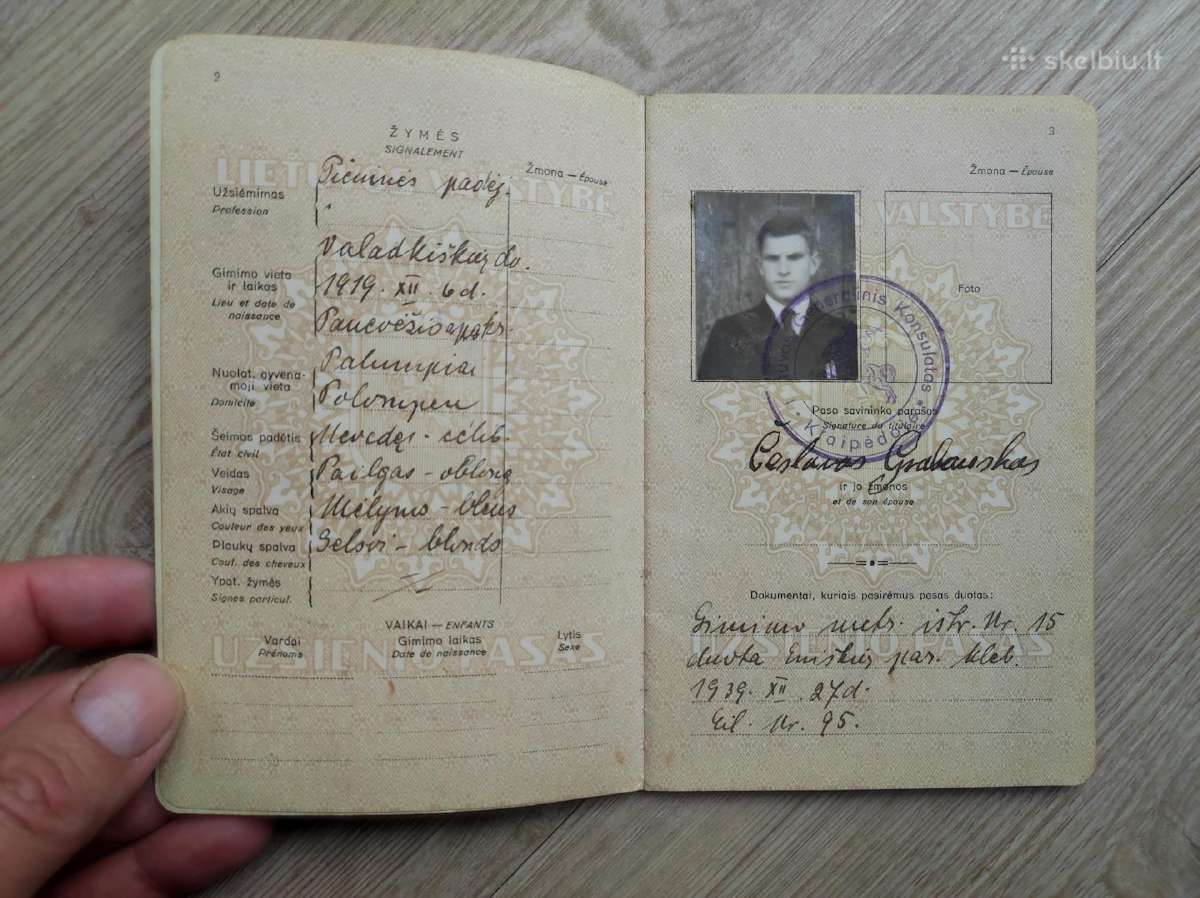 skelbiu.lt
2
ŽYMĖS
SIGNALEMENT
Žmona — Épouse
LIETUVOS VALSTYBĖ
Užsiėmimas
Profession
Pieninės padėj.
Valadkiškių dv.
Gimimo vieta
ir laikas
1919. XII. 6 d.
Lieu et date de
naissance
Panevėžio apskr.
Nuolat. gyvena-
moji vieta
Palumpiai
Domicile
Polompen
Šeimos padėtis
État civil
Nevedęs - célib.
Veidas
Visage
Pailgas - oblong
Akių spalva
Couleur des yeux
Mėlynos - bleus
Plaukų spalva
Coul. des cheveux
Gelsvi - blonds
Ypat. žymės
Signes particul.
VAIKAI — ENFANTS
Vardai
Prénoms
Gimimo laikas
Date de naissance
Lytis
Sexe
UŽSIENIO PASAS
3
Žmona — Épouse
VALSTYBĖ
Foto
Konsulatas
Klaipėdoje
Paso savininko parašas
Signature du titulaire
Česlovas Grabauskas
ir jo žmonos
et de son épouse
Dokumentai, kuriais pasirėmus pasas duotas:
Gimimo metr. ištr. Nr. 15
duota par. kleb.
1939. XII. 27 d.
Eil. Nr. 95.
PASAS